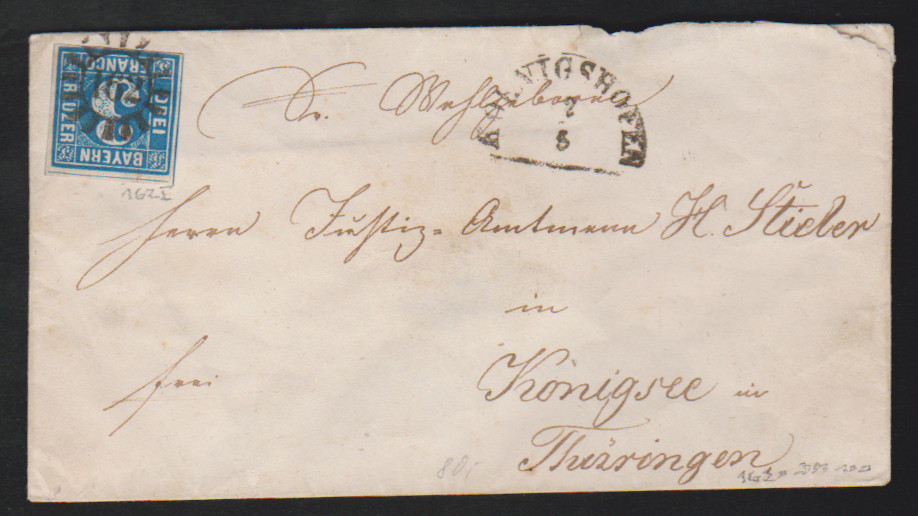 BAYERN
FRANCO
DREI
KREUZER
3
KOENIGSHOFEN
2
5
Sr. Wohlgeboren
Herrn Justiz-Amtmann H. Stieler
in
Königsee in
Thüringen
frei